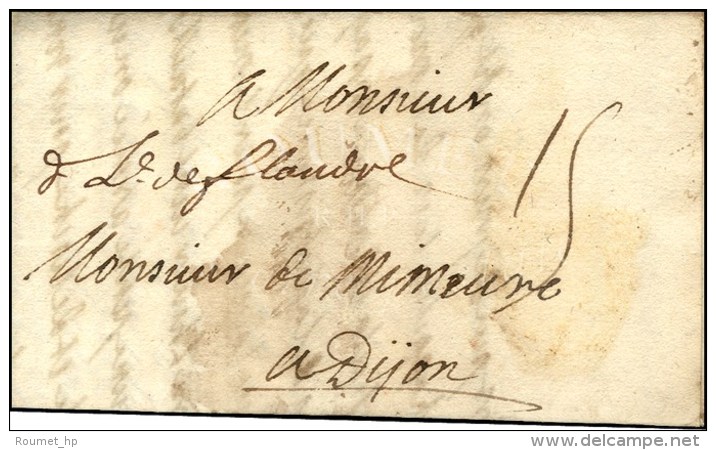 a Monsieur
d L.e de flandre
15
Monsieur de Mimeure
a Dijon
Roumet_hp
© www.delcampe.net